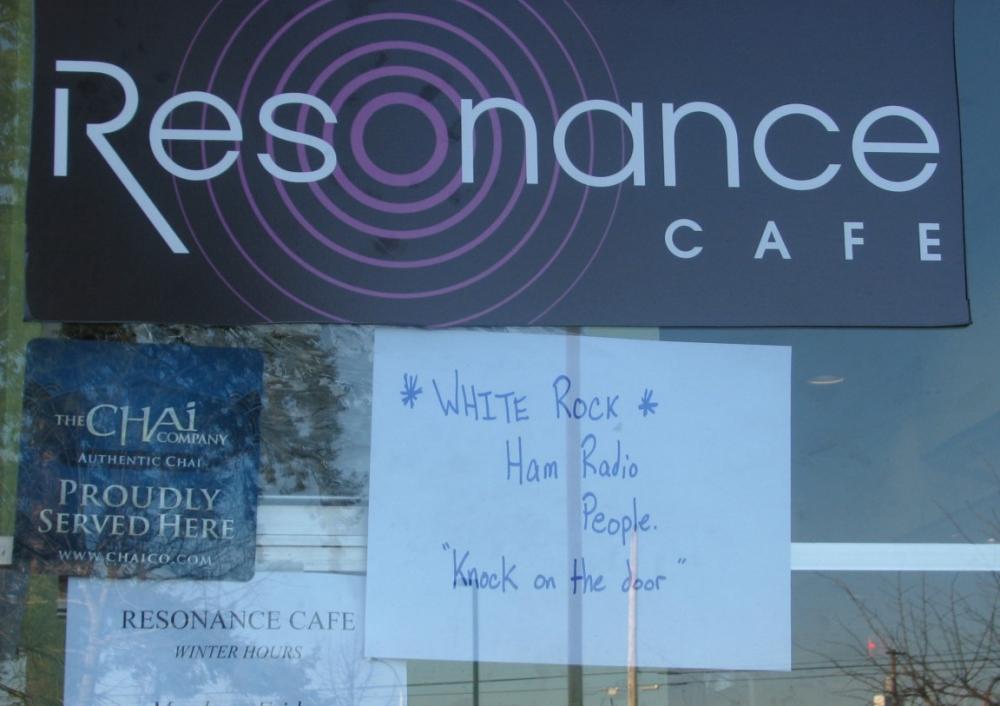 Resonance
CAFE
THE CHAi COMPANY
AUTHENTIC CHAI
PROUDLY
SERVED HERE
WWW.CHAICO.COM
* WHITE ROCK *
Ham Radio
People.
"Knock on the door"
RESONANCE CAFE
WINTER HOURS